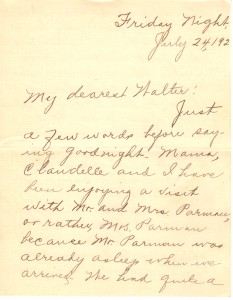 Friday Night.
July 24, 192
My dearest Walter:
Just
a few words before say-
ing goodnight. Mama,
Claudelle and I have
been enjoying a visit
with Mr. and Mrs Parman,
or rather, Mrs Parman
because Mr Parman was
already asleep when we
arrived. She had quite a